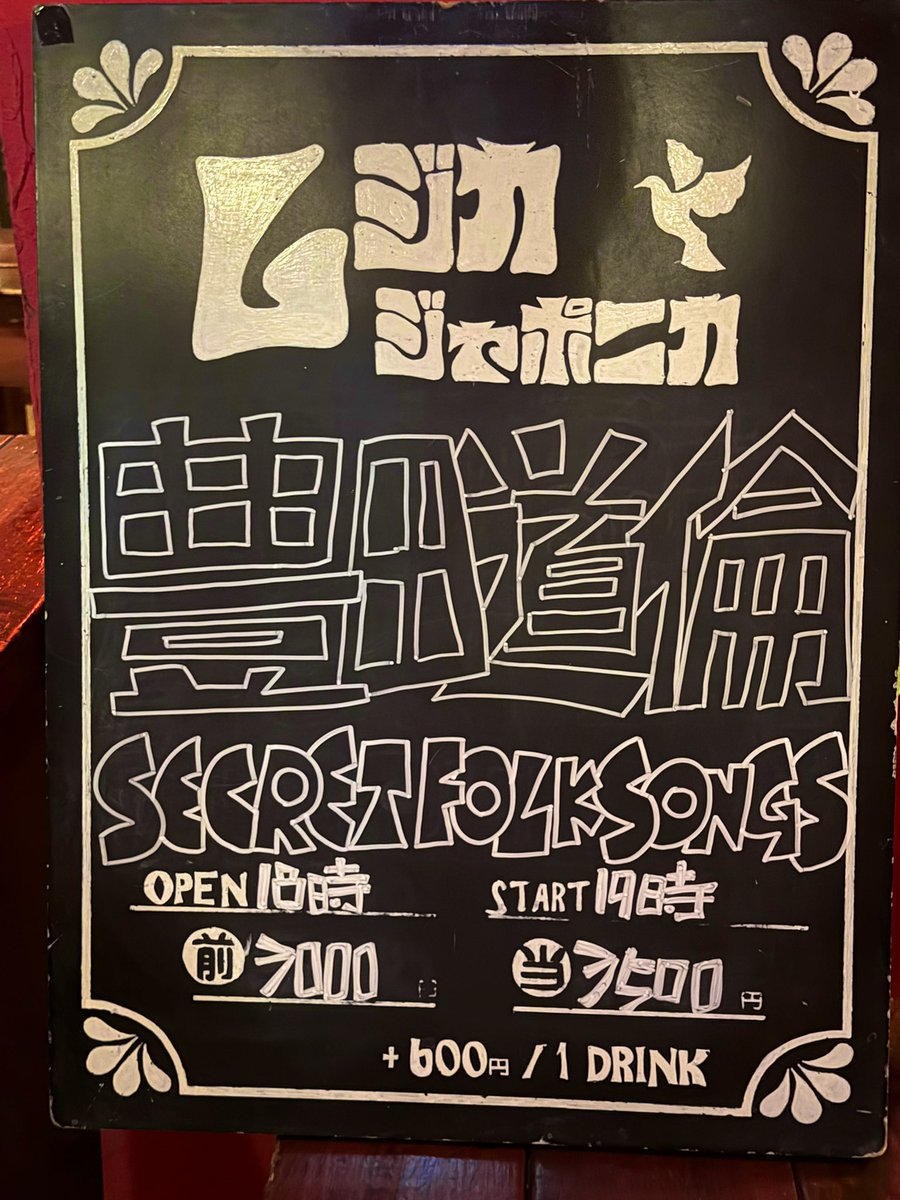 ムジカ
ジャポニカ
豊田道倫
SECRET FOLK SONGS
OPEN 18時 START 19時
前 3000円 当 3500円
+600円/1 DRINK